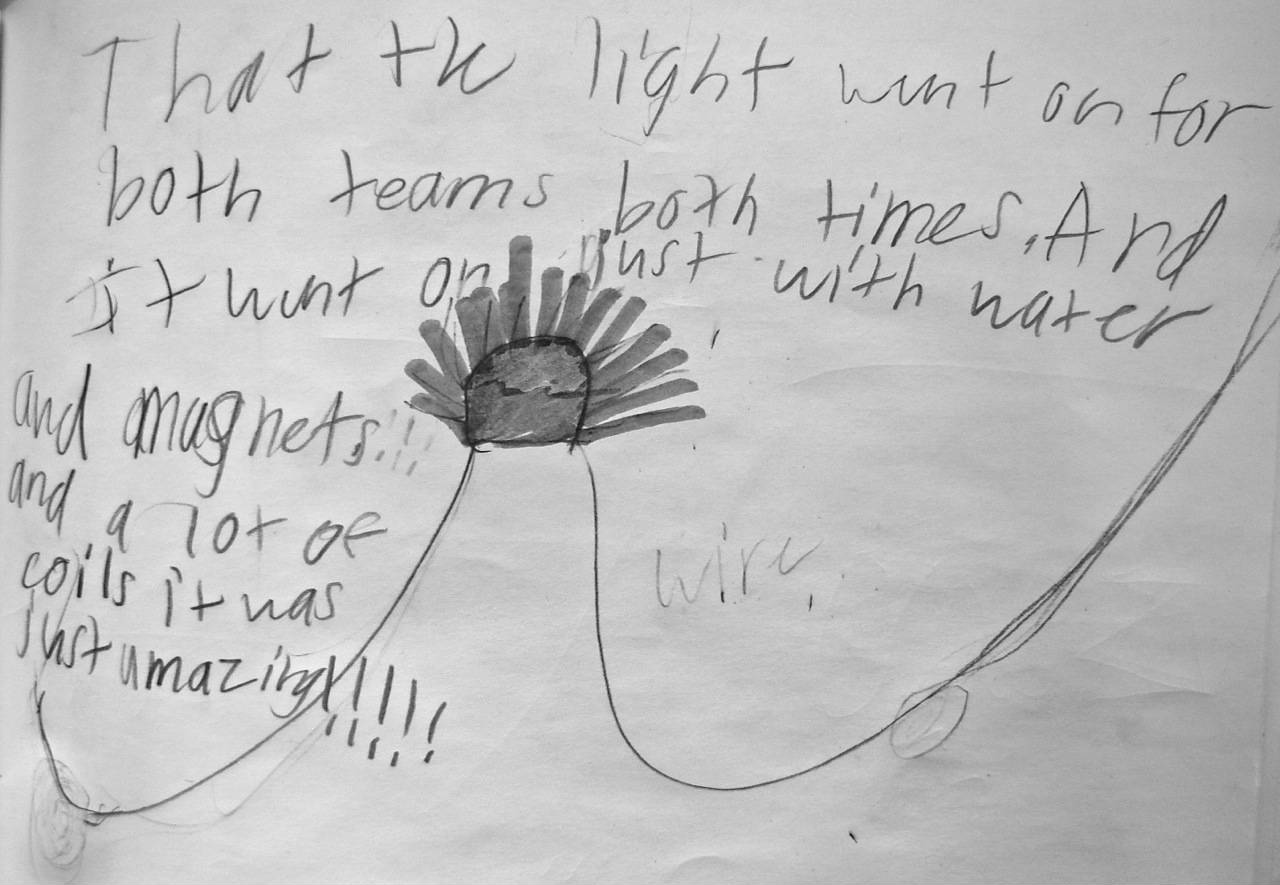 That the light wunt on for
both teams both times. And
It wunt on just with water
and magnets!!!
and a lot of
coils it was
just amazing!!!!!
wire